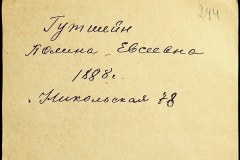 244
Гутшейн
Полина Евсеевна
1888 г.
Никольская 78